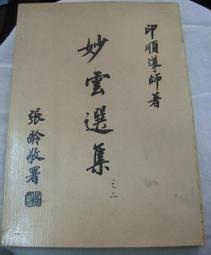 印順導師著
妙雲選集
之二
張齡敬署